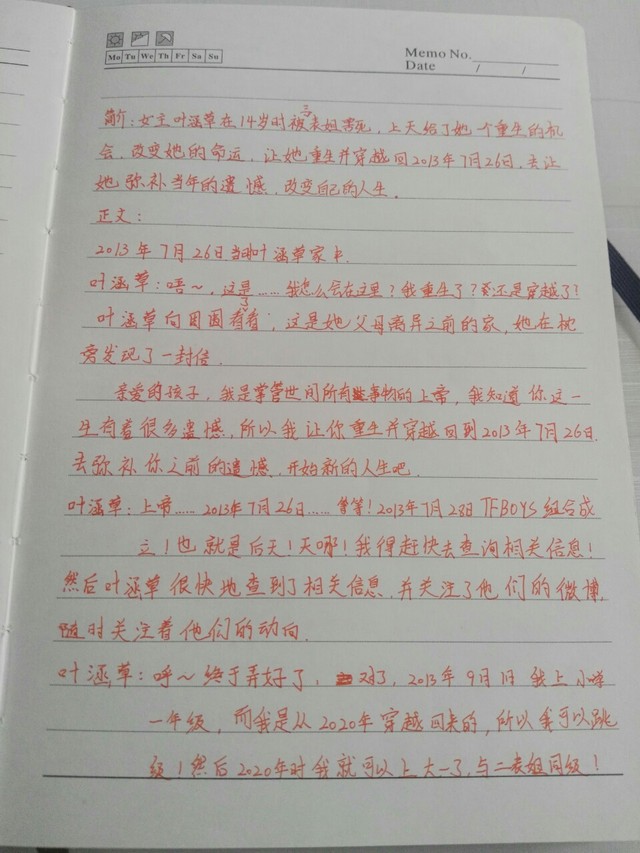 Mo Tu We Th Fr Sa Su
Memo No.
Date / /
简介：女主叶涵草在14岁时被三表姐害死，上天给了她一个重生的机
会，改变她的命运，让她重生并穿越回2013年7月26日，去让
她弥补当年的遗憾，改变自己的人生。
正文：
2013年7月26日当时叶涵草家中
叶涵草：唔～，这是……我怎么会在这里？我重生了？还是穿越了？
叶涵草向四周看了看，这是她父母离异之前的家，她在枕
旁发现了一封信。
亲爱的孩子，我是掌管世间所有事物的上帝，我知道你这一
生有着很多遗憾，所以我让你重生并穿越回到2013年7月26日，
去弥补你之前的遗憾，开始新的人生吧。
叶涵草：上帝……2013年7月26日……等等！2013年7月28日TFBOYS组合成
立！也就是后天！天哪！我得赶快去查询相关信息！
然后叶涵草很快地查到了相关信息，并关注了他们的微博，
随时关注着他们的动向。
叶涵草：呼～终于弄好了，对了，2013年9月1日我上小学
一年级，而我是从2020年穿越回来的，所以我可以跳
级！然后2020年时我就可以上大一了，与二表姐同级！